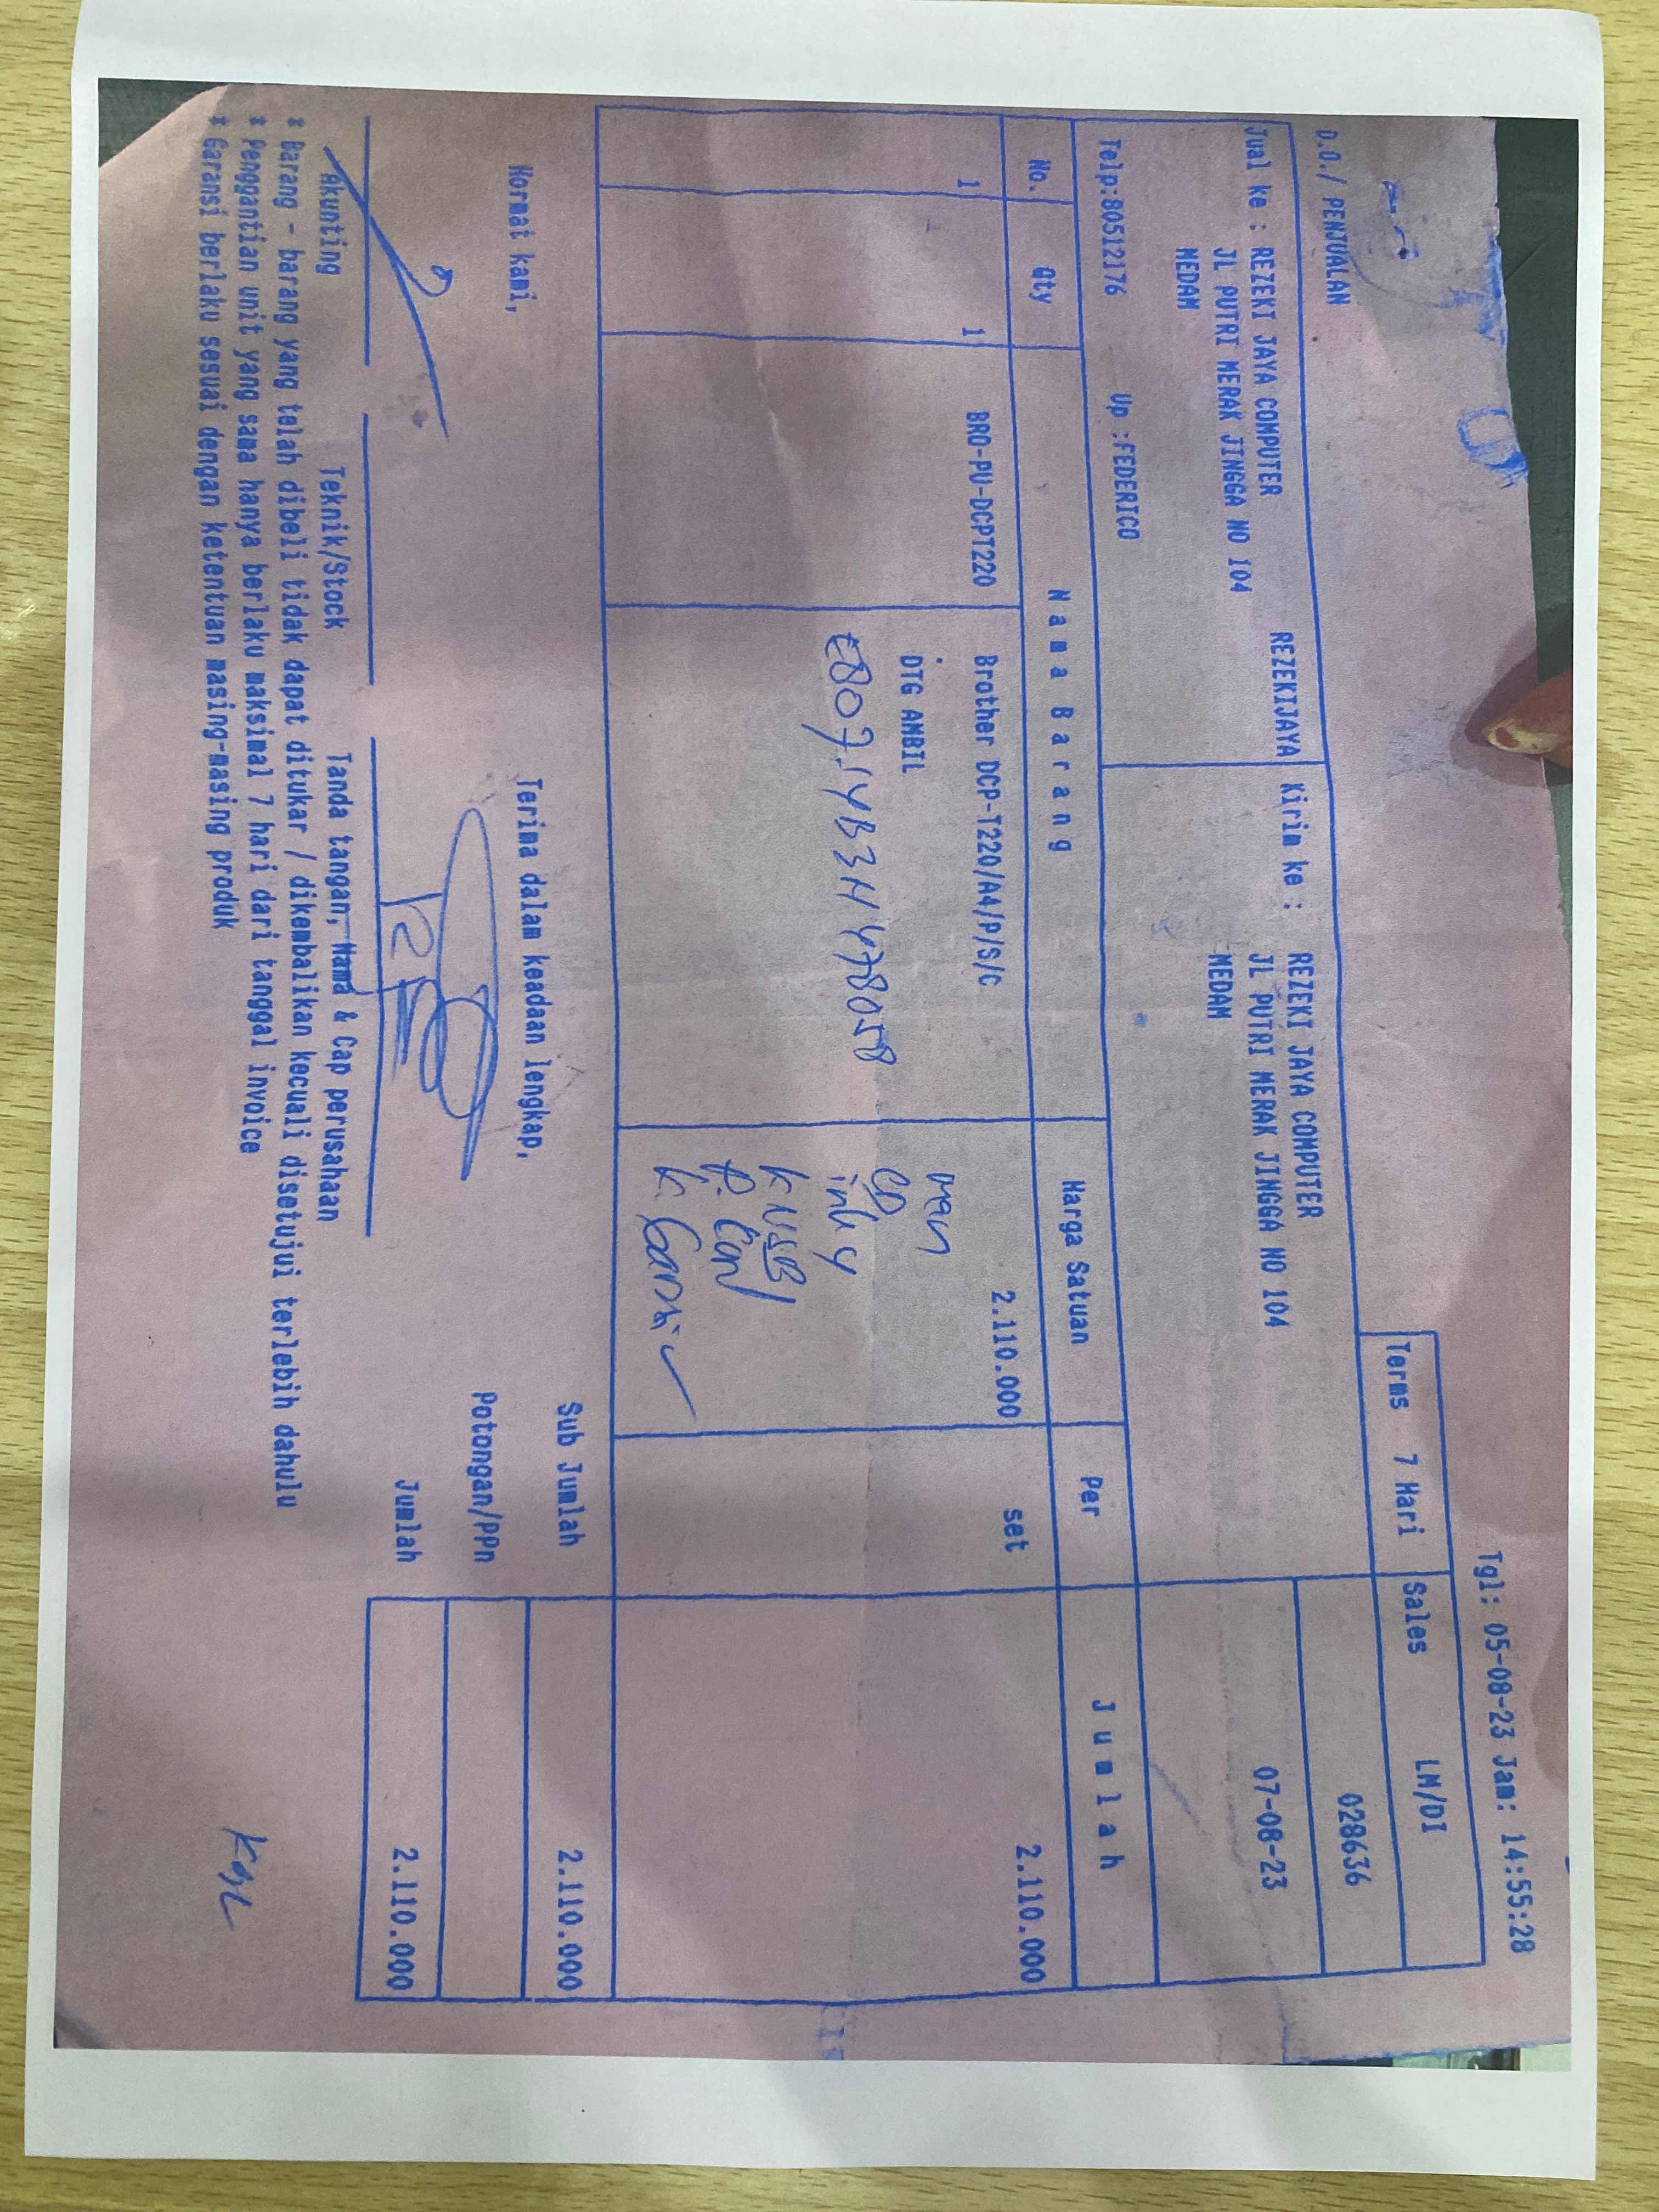 Tgl: 05-08-23 Jam: 14:55:28
Terms 7 Hari Sales LM/DI
D.O./ PENJUALAN
028636
REZEKIJAYA
Jual ke : REZEKI JAYA COMPUTER
JL PUTRI MERAK JINGGA NO 104
MEDAN
Kirim ke : REZEKI JAYA COMPUTER
JL PUTRI MERAK JINGGA NO 104
MEDAN
07-08-23
Telp:80512176 Up :FEDERICO
No. Qty Nama Barang Harga Satuan Per Jumlah
1 1 BRO-PU-DCPT220 Brother DCP-T220/A4/P/S/C 2.110.000 set 2.110.000
DTG AMBIL
man
CD
ink 4
K USB
Hormat kami,
Terima dalam keadaan lengkap,
Sub Jumlah 2.110.000
Potongan/PPn
Jumlah 2.110.000
Akunting Teknik/Stock Tanda tangan, Nama & Cap perusahaan
* Barang - barang yang telah dibeli tidak dapat ditukar / dikembalikan kecuali disetujui terlebih dahulu
* Penggantian unit yang sama hanya berlaku maksimal 7 hari dari tanggal invoice
* Garansi berlaku sesuai dengan ketentuan masing-masing produk